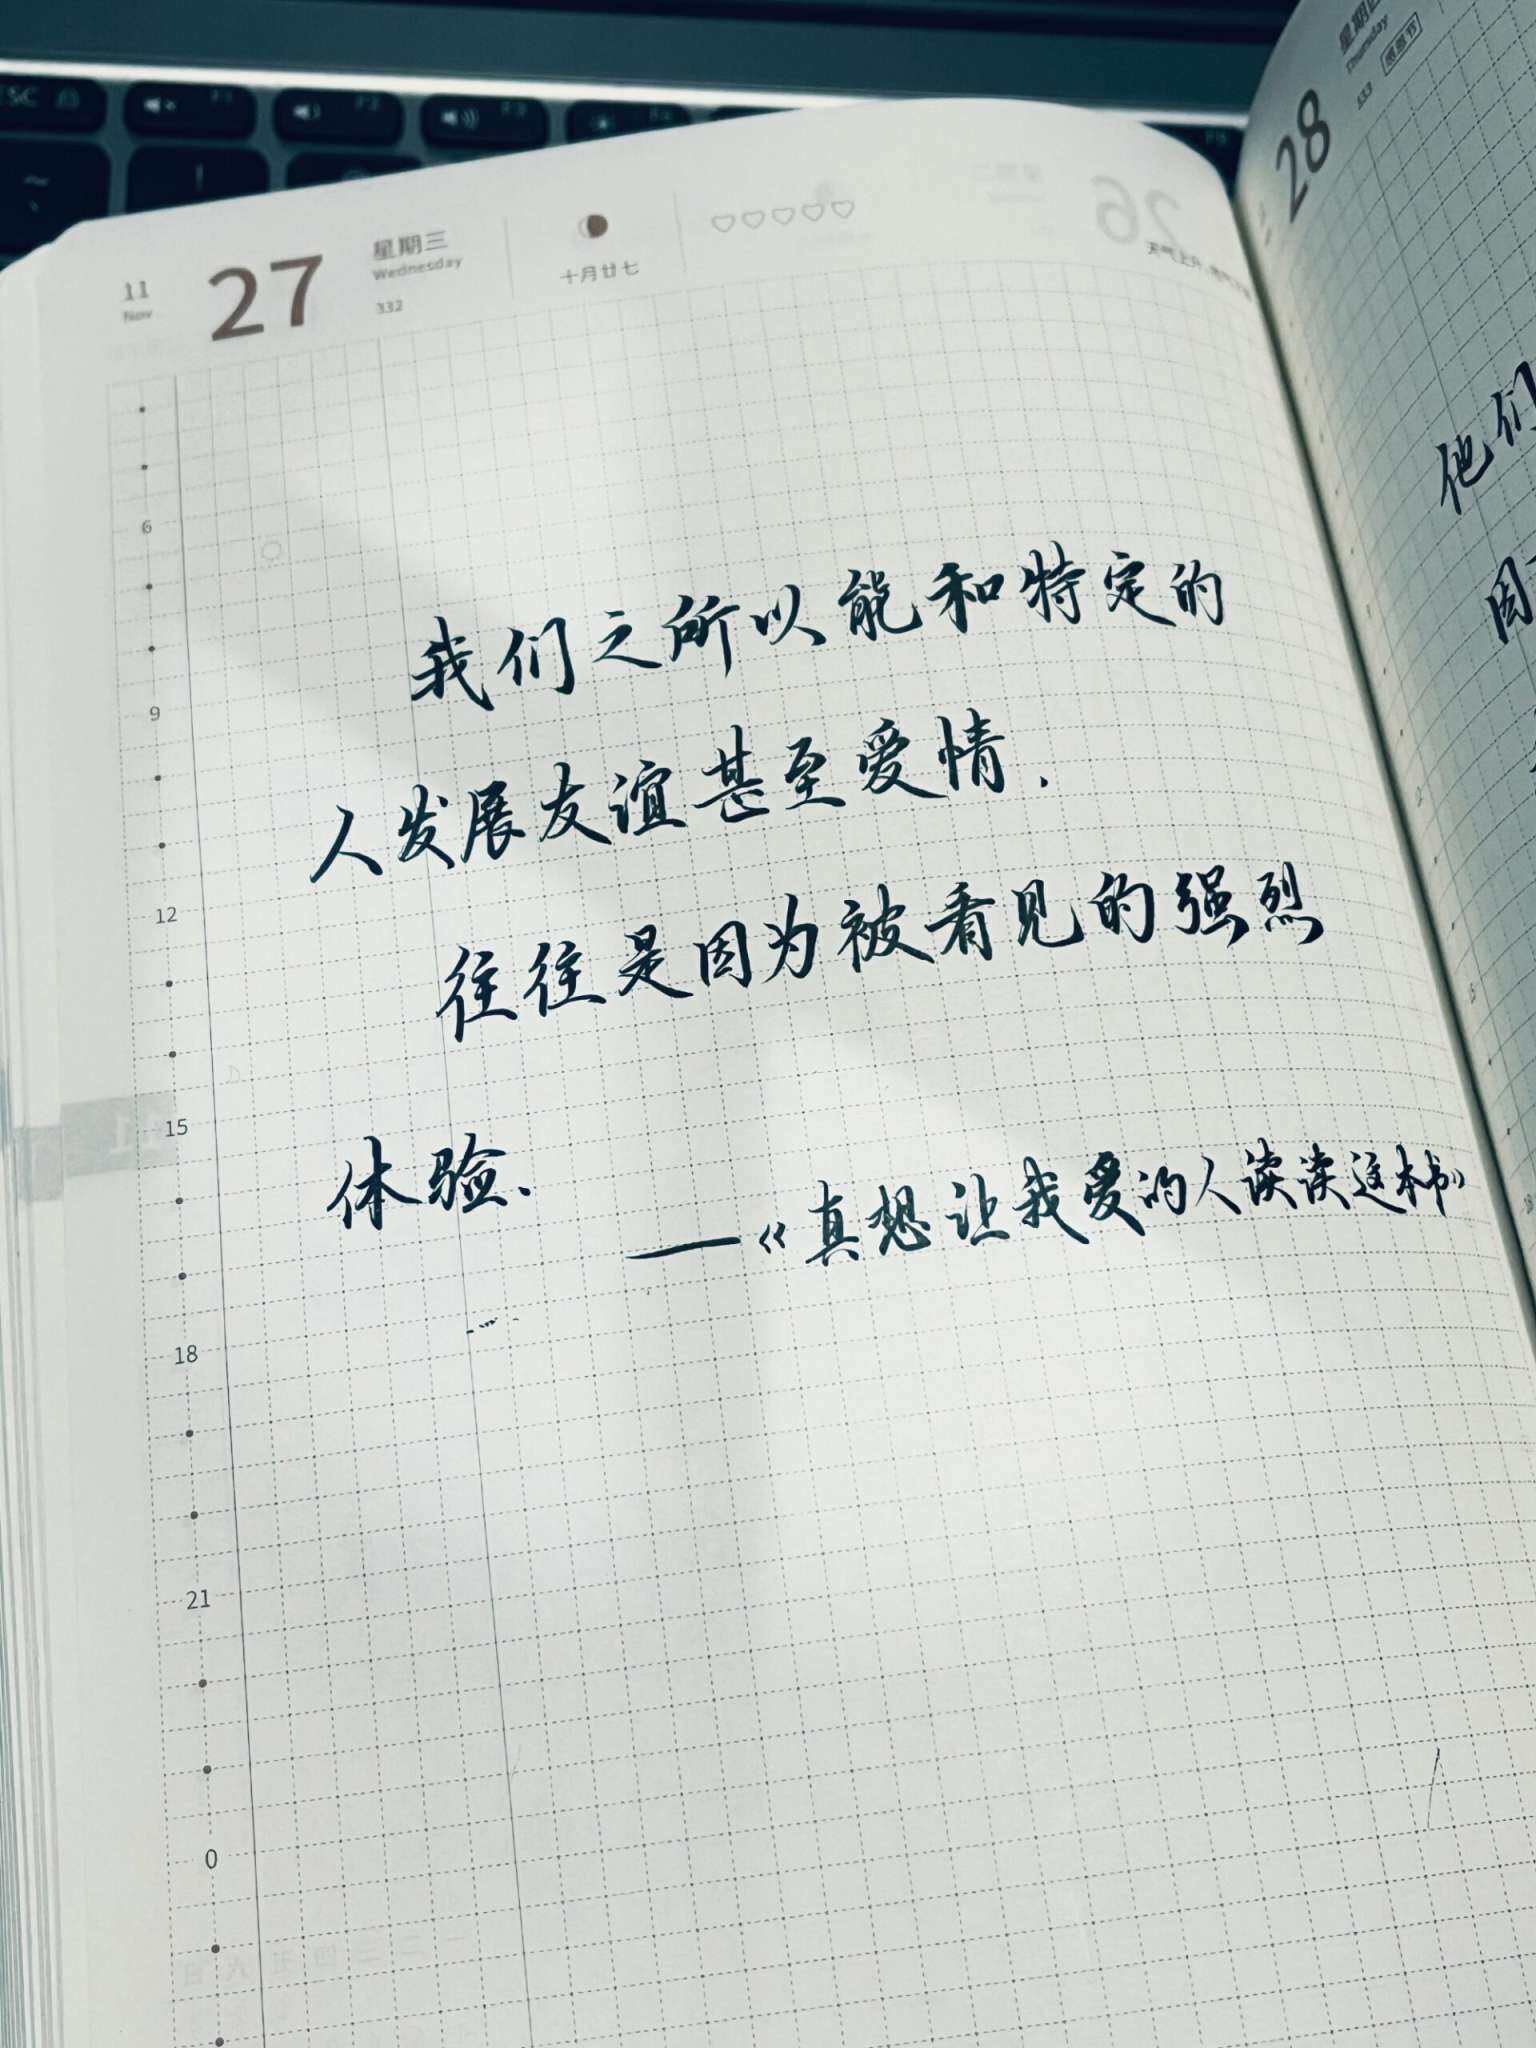 ESC F1 F2 F3
11
Nov
27
星期三
Wednesday
332
十月廿七
26
6
9
12
15
18
21
0
我们之所以能和特定的
人发展友谊甚至爱情.
往往是因为被看见的强烈
体验、
——《真想让我爱的人读读这本书》
日 六 五 四 三 二 一
Thursday
感恩节
333
28
他们
因